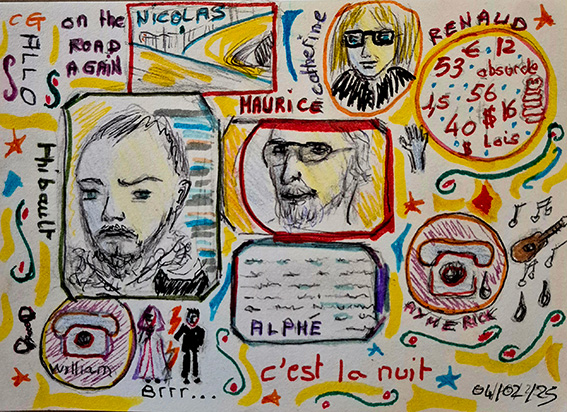 CG
ALLO
on the
ROAD
AGAIN
NICOLAS
catherine
RENAUD
€ 12
53
absurde
45 56
$ 16
40
$ Lois
MAURICE
Thibault
ALPHÉ
AYMERICK
William
Brrr...
c'est la nuit
04/02/25